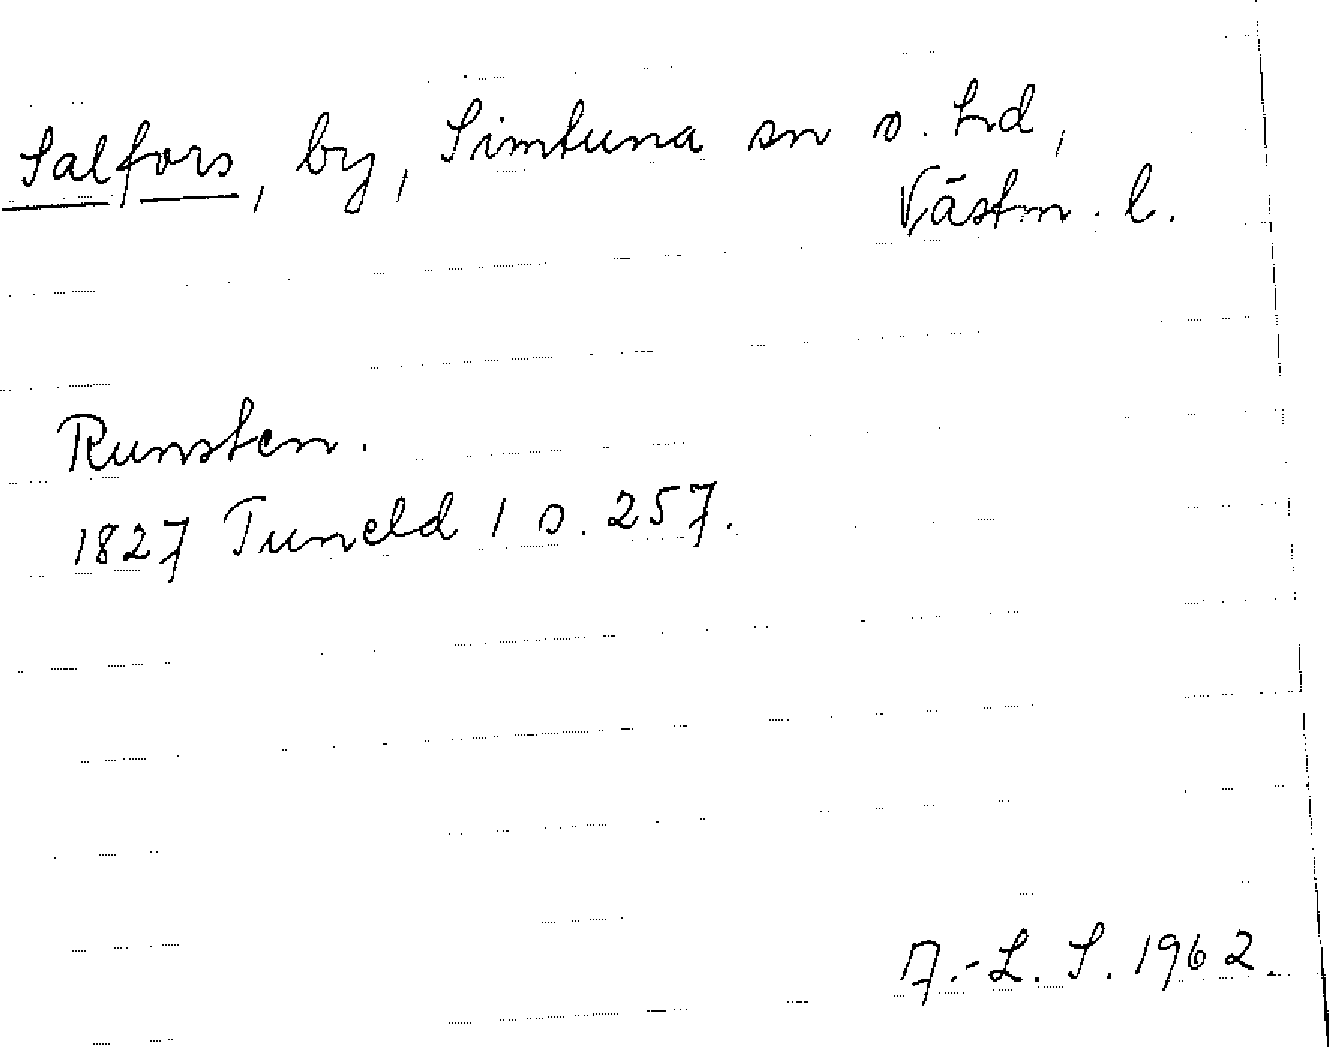 Salfors, by, Simtuna sn o. hd,
Västm. l.
Runsten.
1827 Tuneld 1 s. 257.
A.-L. S. 1962.